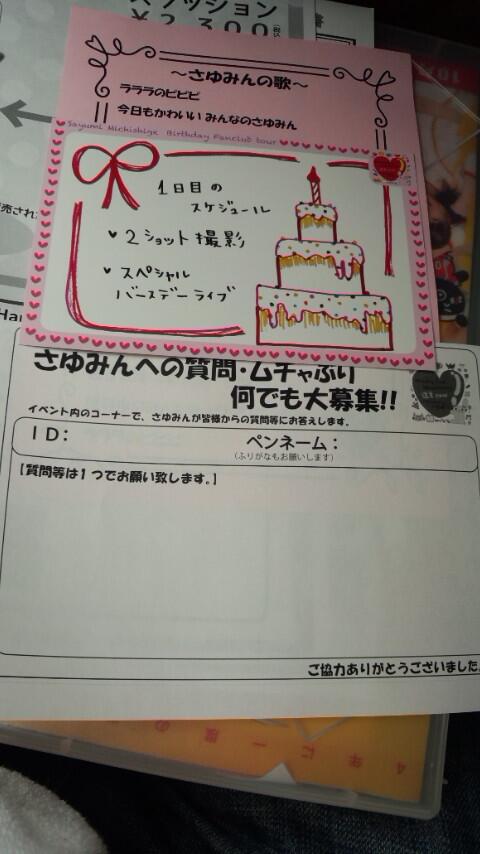 クッション
¥2,300(税込
～さゆみんの歌～
ラララのピピピ
今日もかわいいみんなのさゆみん
Sayumi Michishige Birthday Fanclub tour
1日目の
スケジュール
♥ 2ショット撮影
♥ スペシャル
バースデーライブ
さゆみんへの質問・ムチャぶり
何でも大募集!!
イベント内のコーナーで、さゆみんが皆様からの質問等にお答えします。
ＩＤ：
ペンネーム：
(ふりがなもお願いします)
【質問等は１つでお願い致します。】
ご協力ありがとうございました